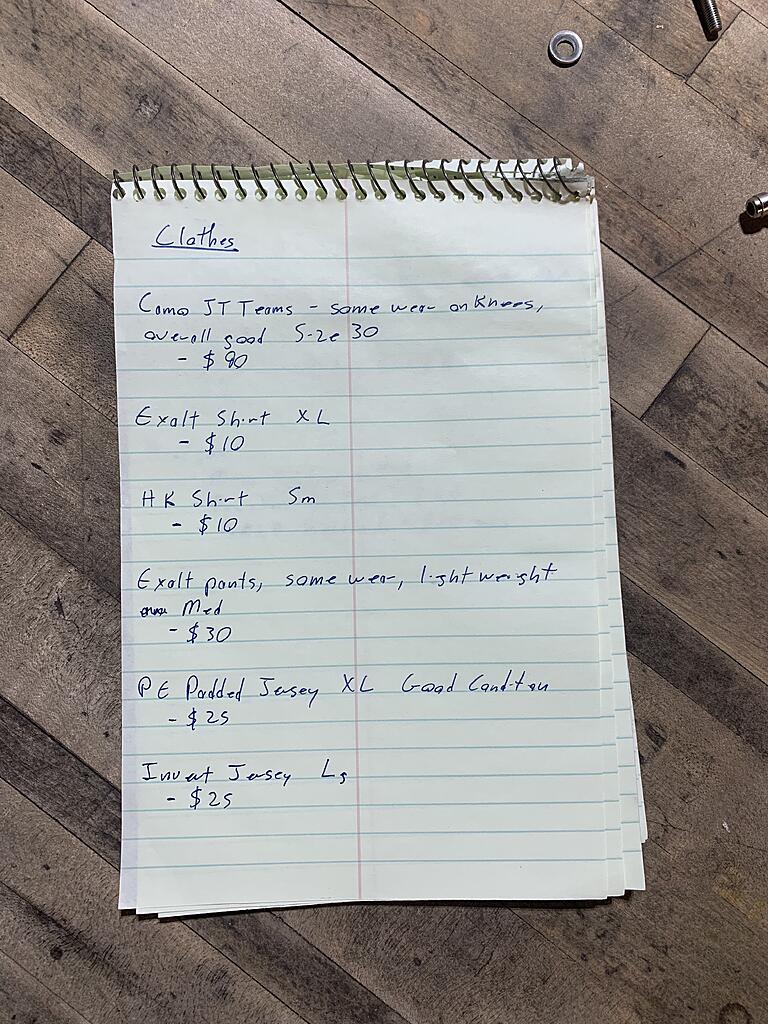 Clothes
Camo JT Teams - some wear on Knees,
overall good Size 30
- $90
Exalt Shirt XL
- $10
HK Shirt Sm
- $10
Exalt pants, some wear, light weight
Med
- $30
PE Padded Jersey XL Good Condition
- $25
Invert Jersey Lg
- $25